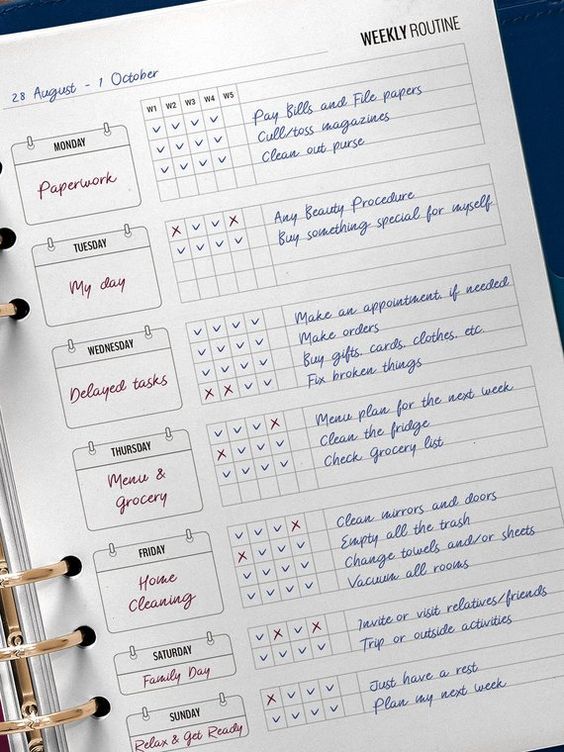 WEEKLY ROUTINE
28 August - 1 October
W1 W2 W3 W4 W5
MONDAY
Paperwork
Pay Bills and File papers
Cull/toss magazines
Clean out purse
TUESDAY
My day
Any Beauty Procedure
Buy something special for myself
WEDNESDAY
Delayed tasks
Make an appointment, if needed
Make orders
Buy gifts, cards, clothes, etc.
Fix broken things
THURSDAY
Menu &
Grocery
Menu plan for the next week
Clean the fridge
Check grocery list
FRIDAY
Home
Cleaning
Clean mirrors and doors
Empty all the trash
Change towels and/or sheets
Vacuum all rooms
SATURDAY
Family Day
Invite or visit relatives/friends
Trip or outside activities
SUNDAY
Relax & Get Ready
Just have a rest
Plan my next week